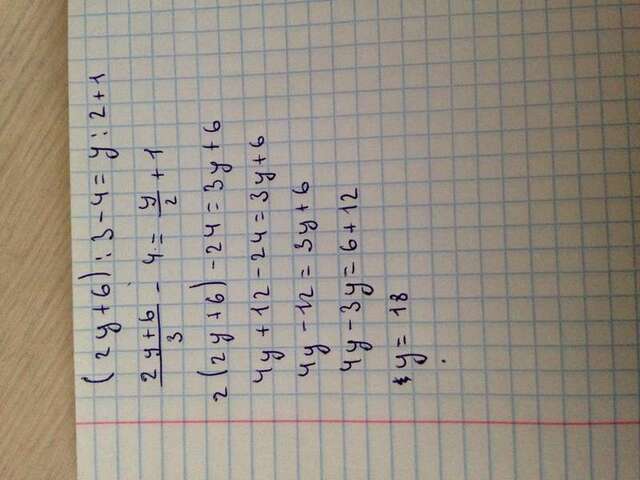 (2y+6):3-4=y:2+1
\frac{2y+6}{3} - 4 = \frac{y}{2} + 1
2(2y+6)-24=3y+6
4y+12-24=3y+6
4y-12=3y+6
4y-3y=6+12
y=18